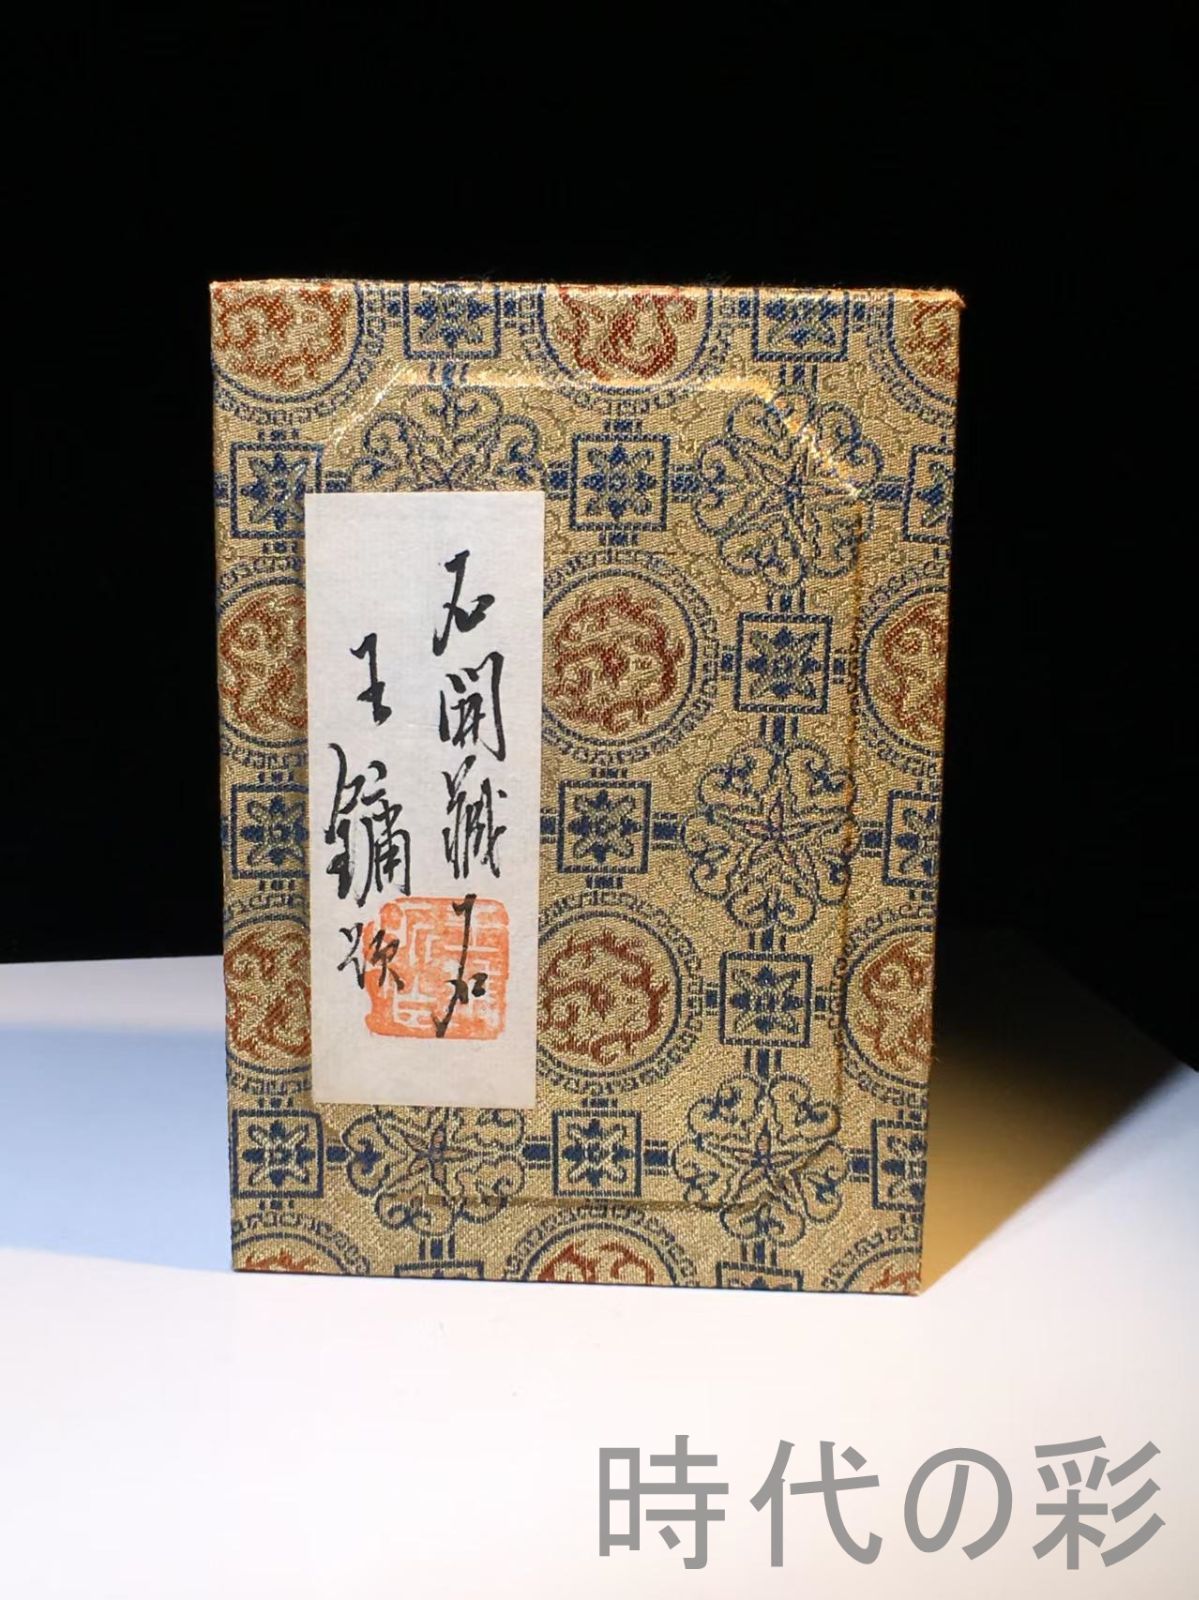 石開藏石
王鏞題
時代の彩